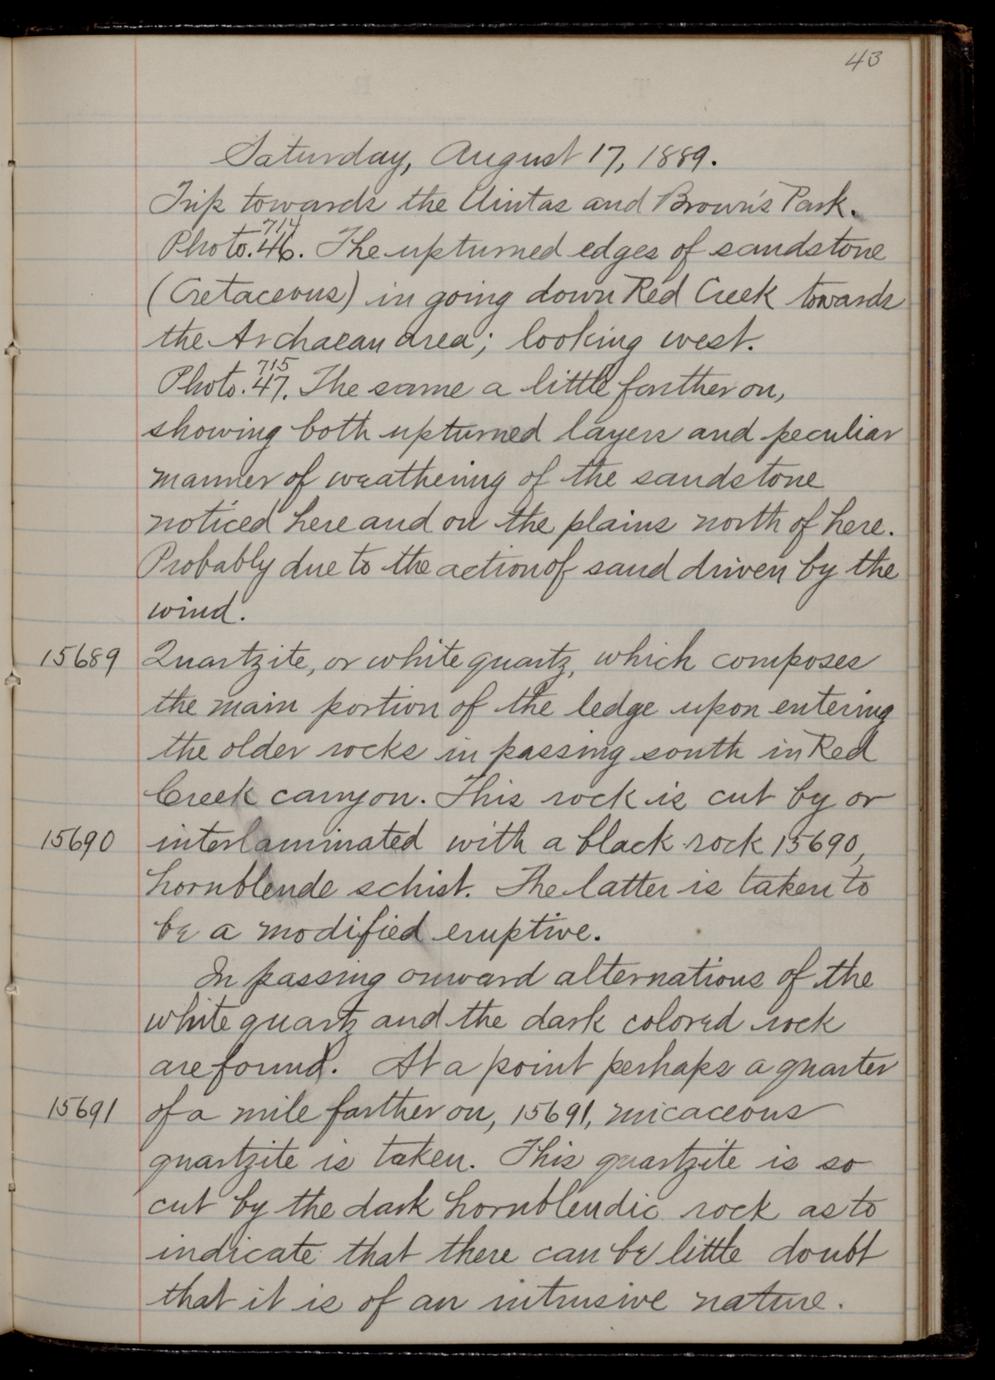 43
Saturday, August 17, 1889.
Trip towards the Uintas and Brown's Park.
714
Photo. 46. The upturned edges of sandstone
(Cretaceous) in going down Red Creek towards
the Archaean area; looking west.
715
Photo. 47. The same a little farther on,
showing both upturned layers and peculiar
manner of weathering of the sandstone
noticed here and on the plains north of here.
Probably due to the action of sand driven by the
wind.
15689 Quartzite, or white quartz, which composes
the main portion of the ledge upon entering
the older rocks in passing south in Red
Creek canyon. This rock is cut by or
15690 interlaminated with a black rock 15690,
hornblende schist. The latter is taken to
be a modified eruptive.
In passing onward alternations of the
white quartz and the dark colored rock
are found. At a point perhaps a quarter
15691 of a mile farther on, 15691, micaceous
quartzite is taken. This quartzite is so
cut by the dark hornblendic rock as to
indicate that there can be little doubt
that it is of an intrusive nature.